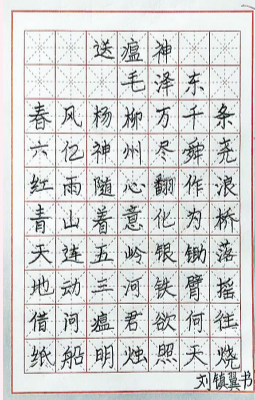 送瘟神
毛泽东
春风杨柳万千条
六亿神州尽舜尧
红雨随心翻作浪
青山着意化为桥
天连五岭银锄落
地动三河铁臂摇
借问瘟君欲何往
纸船明烛照天烧
刘镇翼书